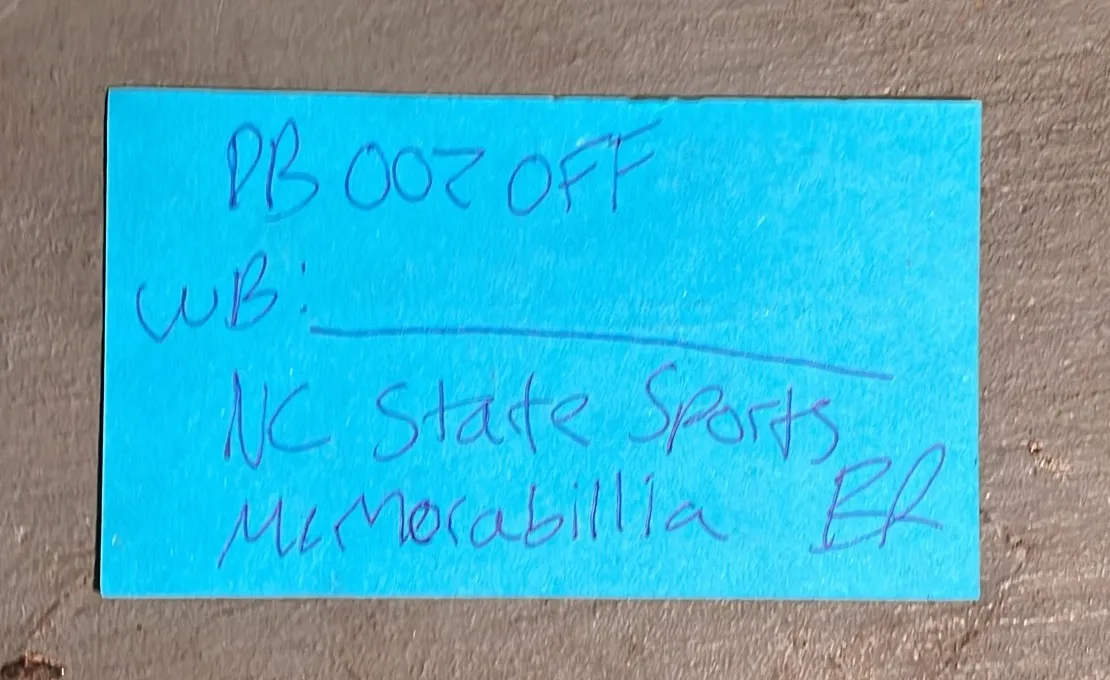 PB 002 OFF
WB: 
NC State Sports
Memorabillia BR